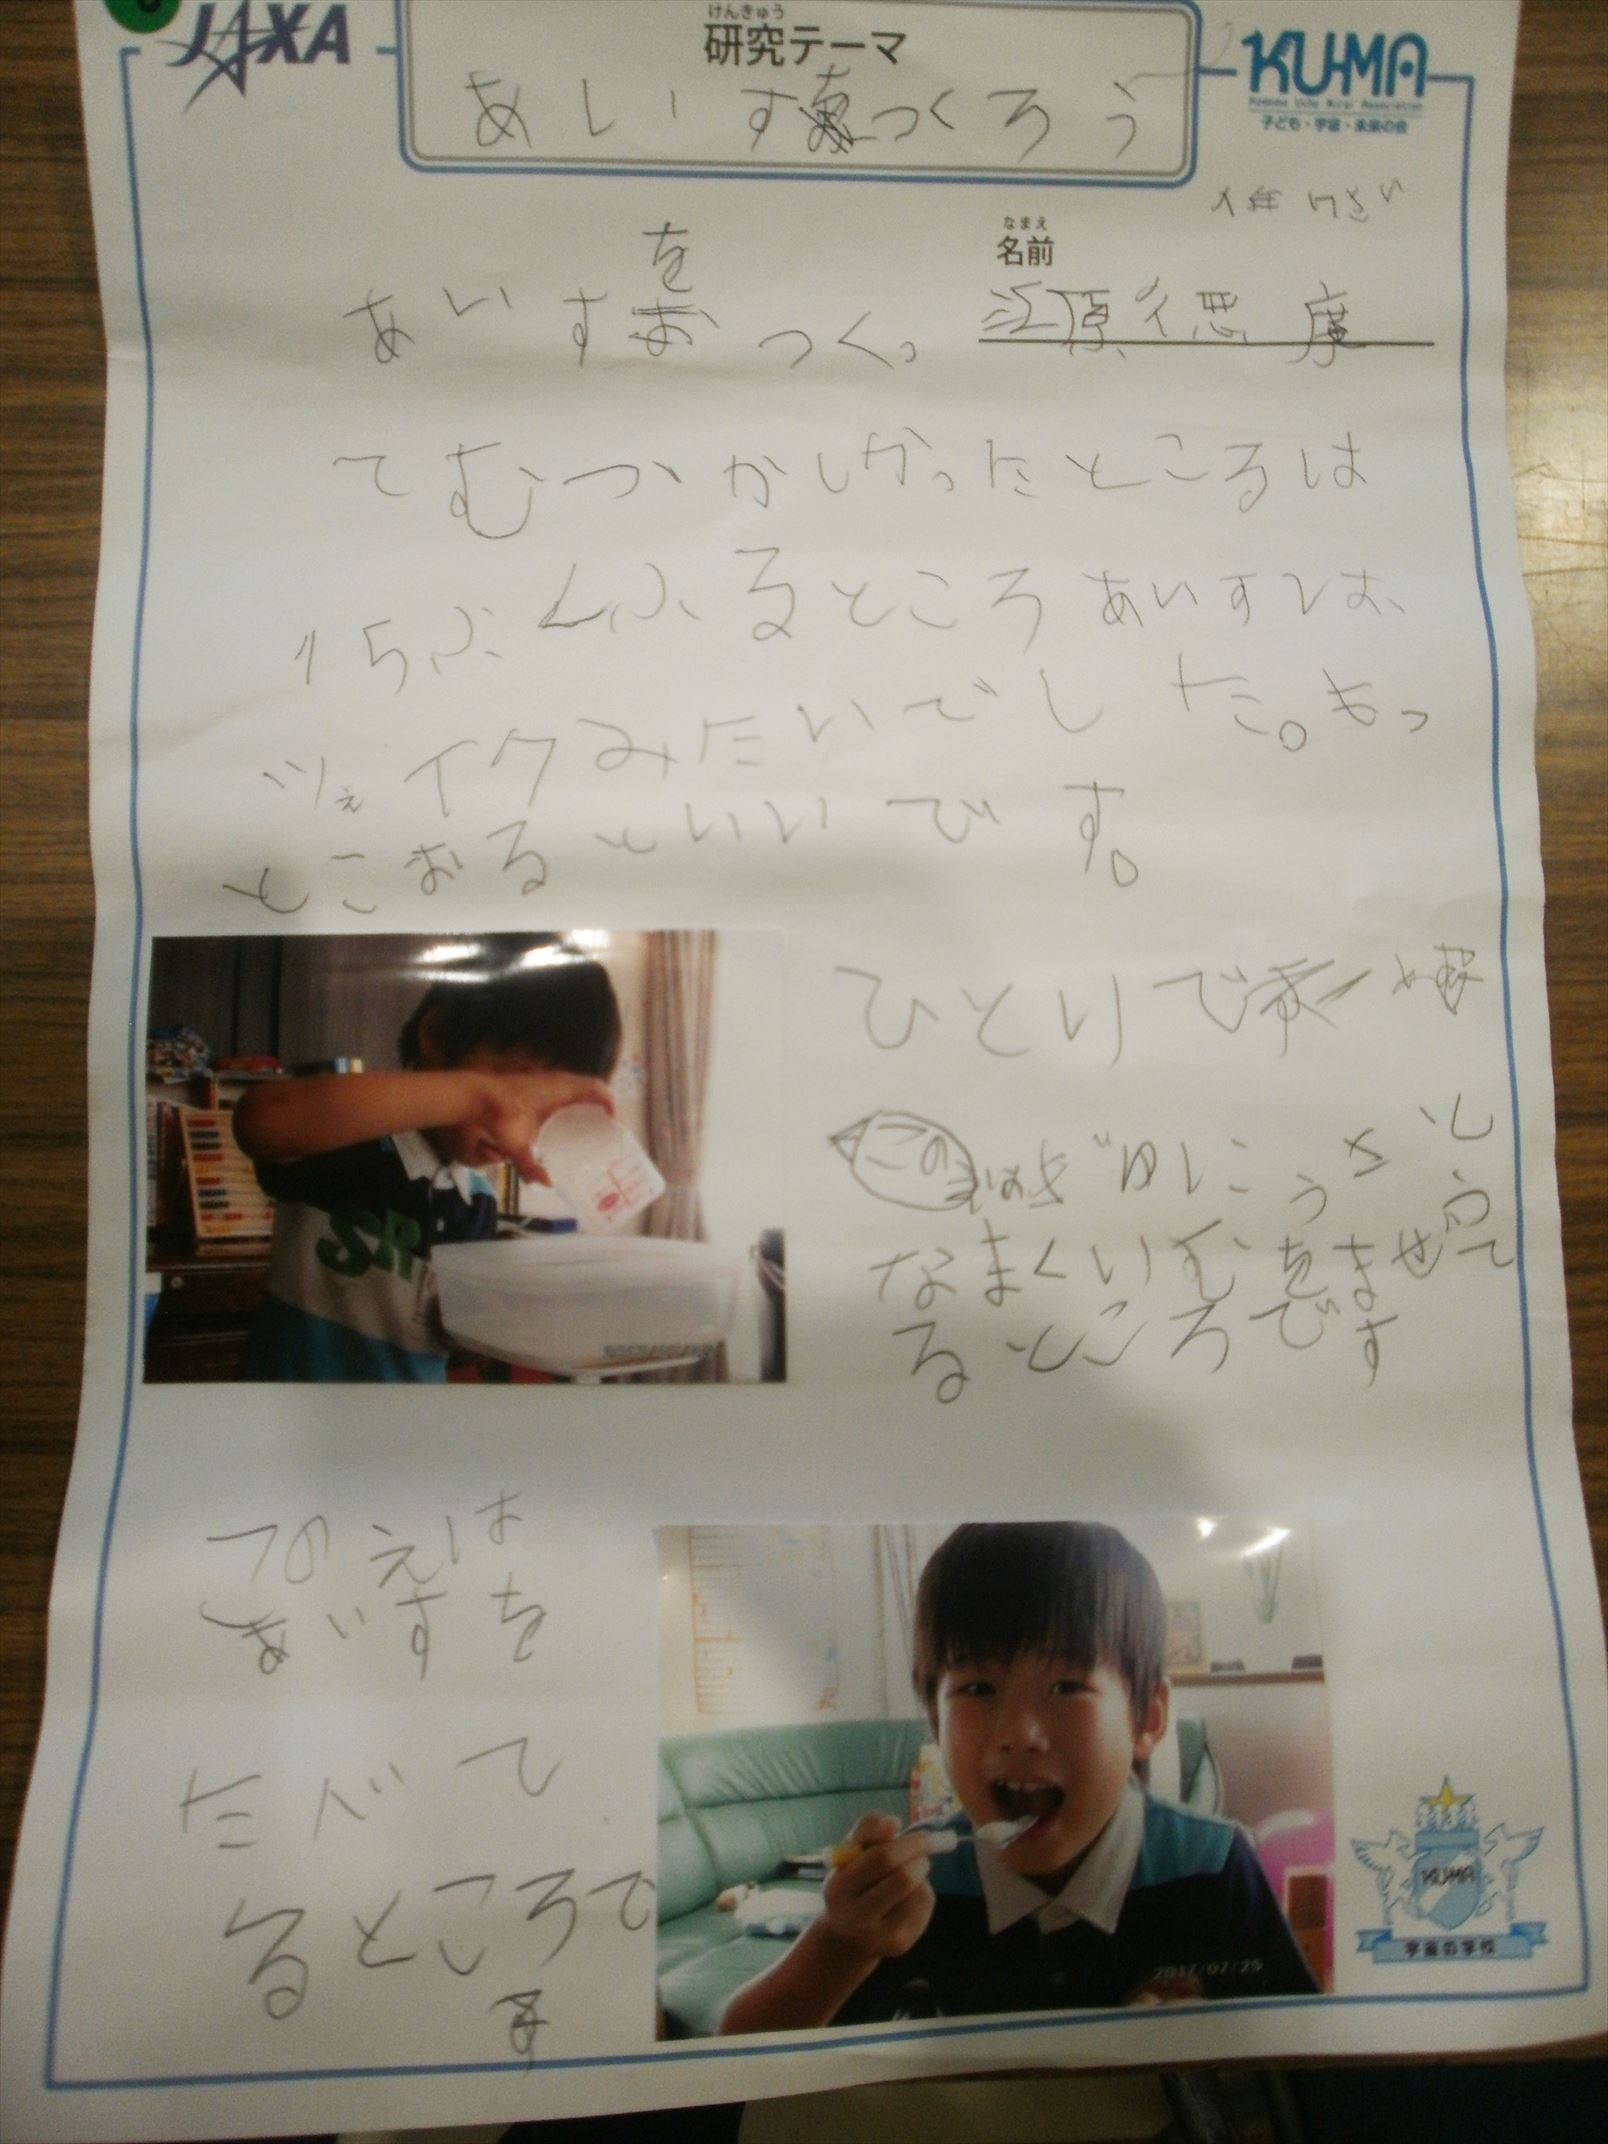 JAXA
けんきゅう
研究テーマ
あいすをつくろう
KUMA
Kodomo Uchu Mirai Association
子ども・宇宙・未来の会
1年 7さい
なまえ
名前
江原徳磨
あいすをつくっ
てむつかしかったところは
15ふんふるところあいすは、
ツェイクみたいでした。もっ
とこおるといいです。
ひとりで
このえは ぎゅにゅうとし
なまくいむをまぜて
るところです
このえは
あいすを
たべて
るところで
す
2017/07/25
KUMA
宇宙の学校